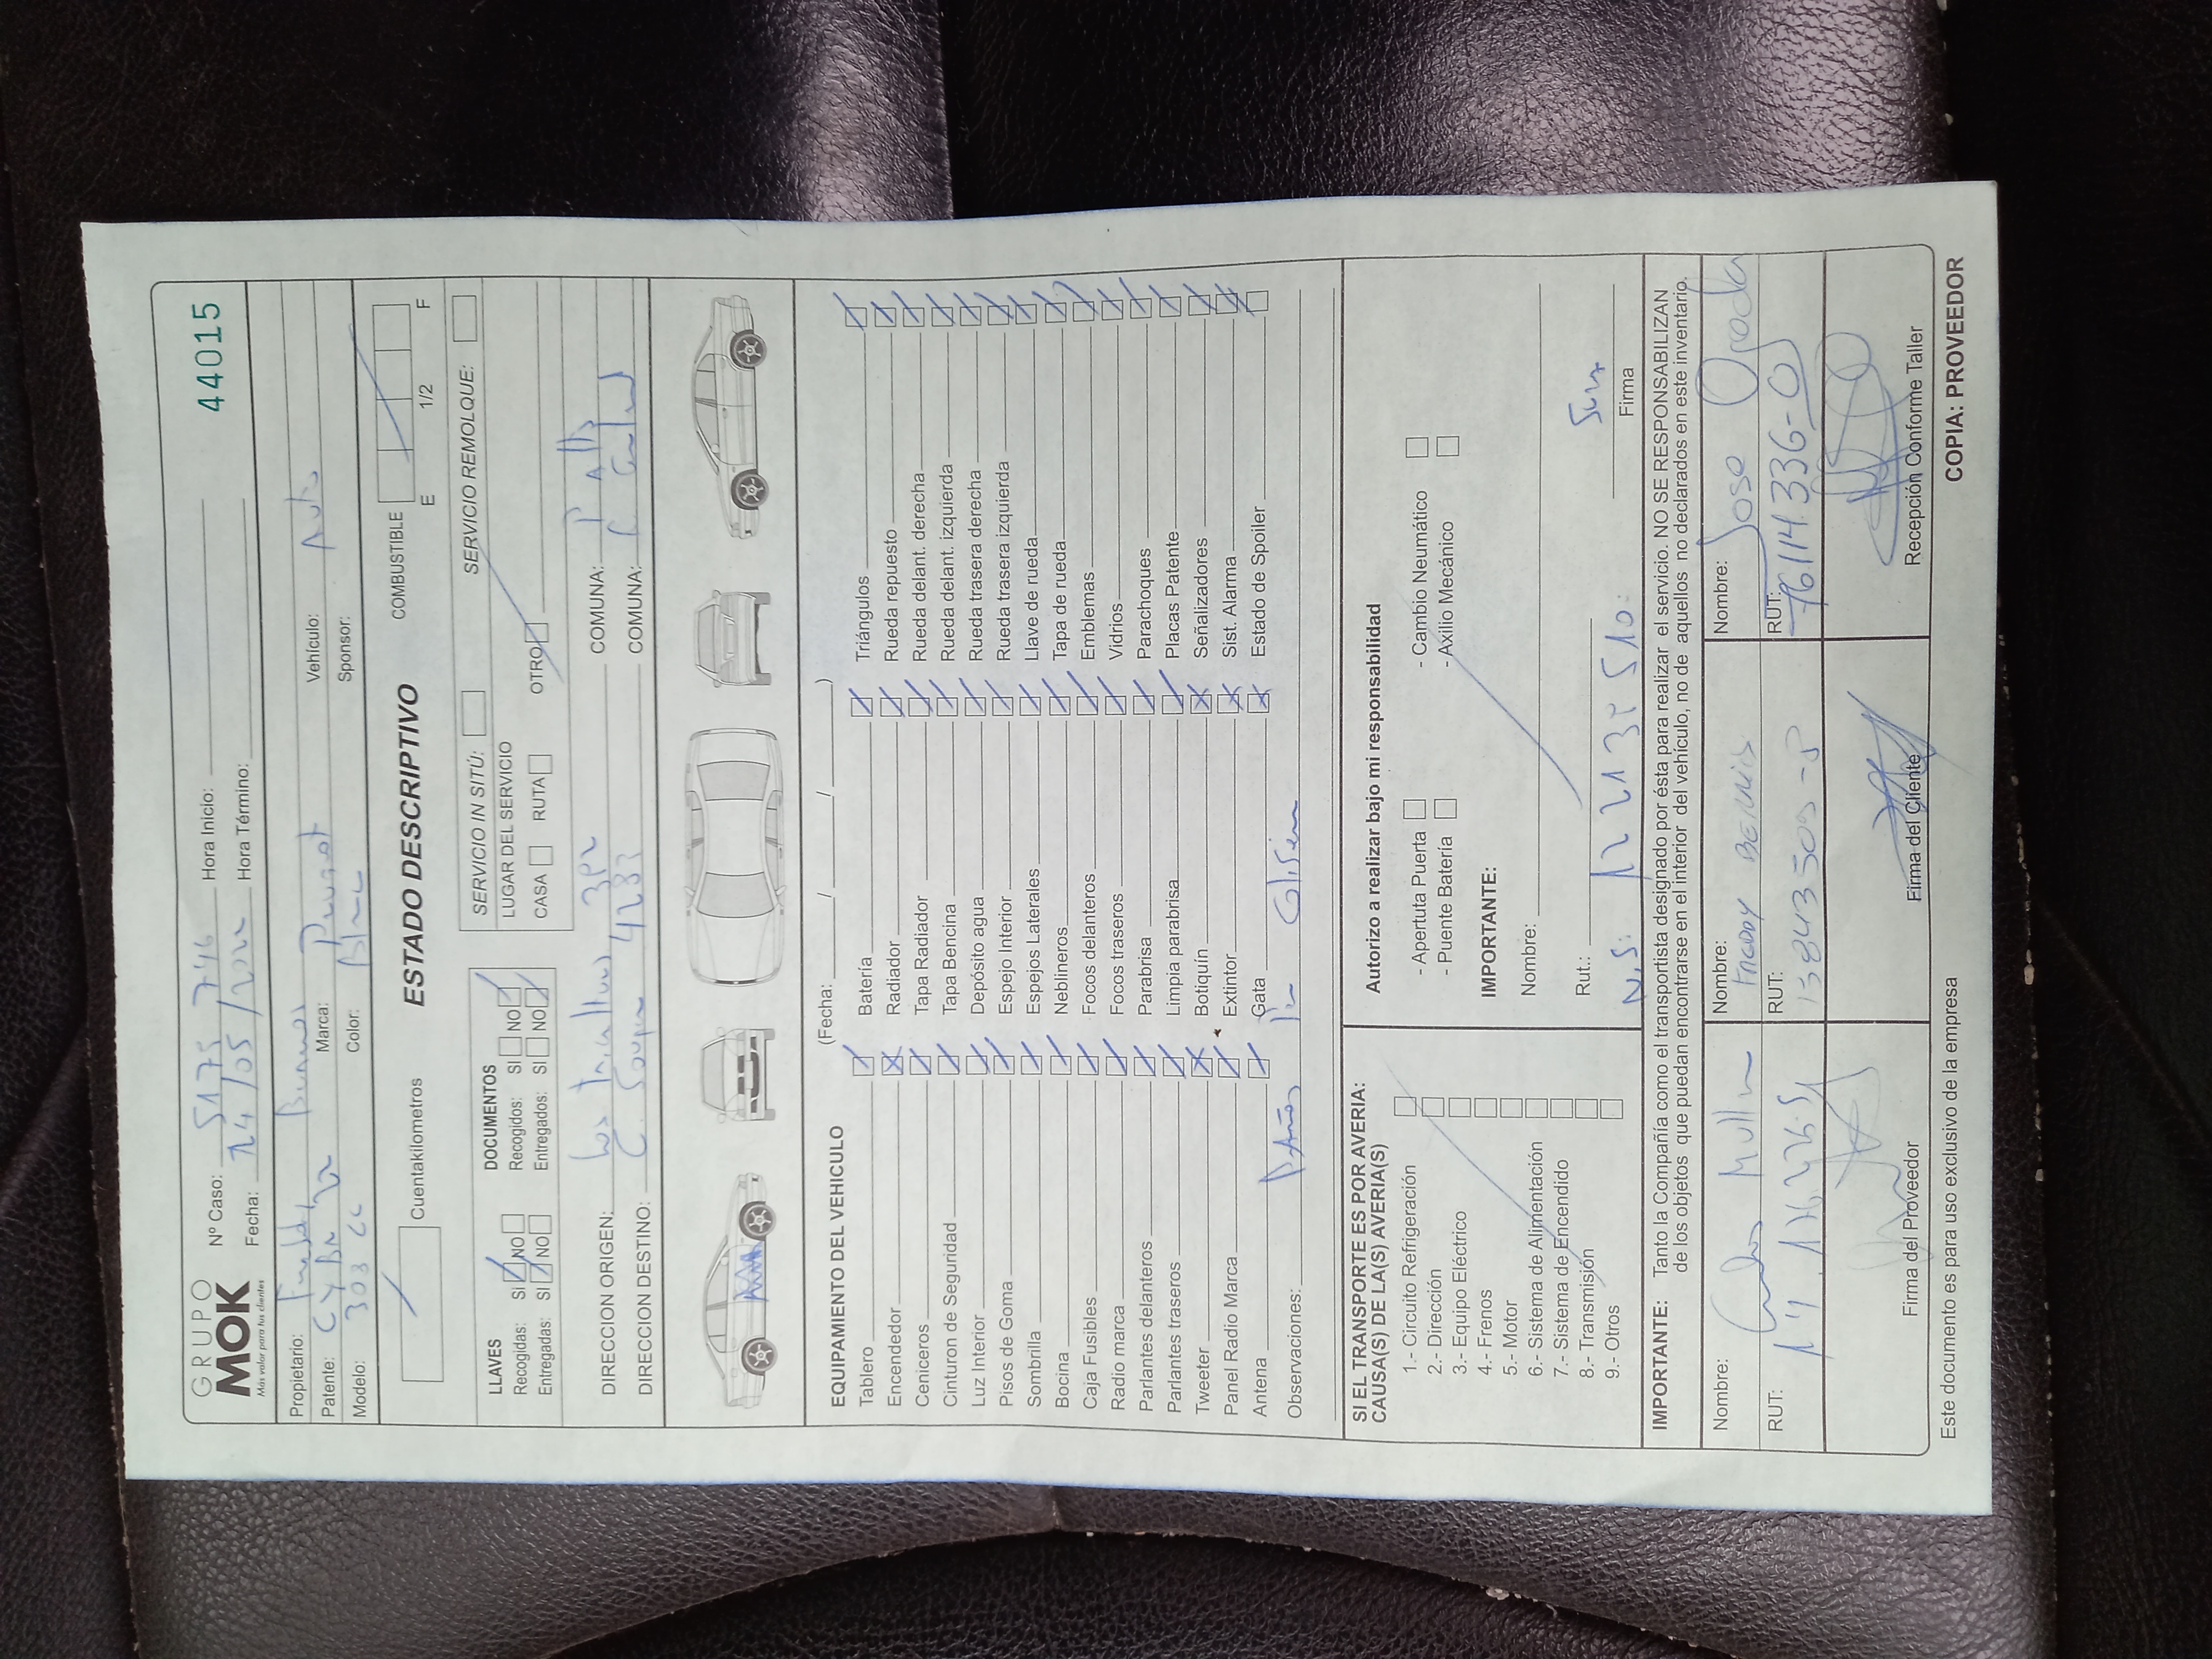 GRUPO
MOK
Más valor para tus clientes
Nº Caso: 5175 746 Hora Inicio: 44015
Fecha: 14/05/2022 Hora Término:
Propietario: Freddy Vehículo: Auto
Patente: Marca: Peugeot Sponsor:
Modelo: 303 cc Color: Blanco
ESTADO DESCRIPTIVO
Cuentakilometros
COMBUSTIBLE
E 1/2 F
LLAVES
Recogidas: SI NO
Entregadas: SI NO
DOCUMENTOS
Recogidos: SI NO
Entregados: SI NO
SERVICIO IN SITÚ:
SERVICIO REMOLQUE:
LUGAR DEL SERVICIO
CASA RUTA OTRO
DIRECCION ORIGEN: Los COMUNA: P Alto
DIRECCION DESTINO: 4233 COMUNA:
EQUIPAMIENTO DEL VEHICULO (Fecha: / / )
Tablero Batería Triángulos
Encendedor Radiador Rueda repuesto
Ceniceros Tapa Radiador Rueda delant. derecha
Cinturon de Seguridad Tapa Bencina Rueda delant. izquierda
Luz Interior Depósito agua Rueda trasera derecha
Pisos de Goma Espejo Interior Rueda trasera izquierda
Sombrilla Espejos Laterales Llave de rueda
Bocina Neblineros Tapa de rueda
Caja Fusibles Focos delanteros Emblemas
Radio marca Focos traseros Vidrios
Parlantes delanteros Parabrisa Parachoques
Parlantes traseros Limpia parabrisa Placas Patente
Tweeter Botiquín Señalizadores
Panel Radio Marca Extintor Sist. Alarma
Antena Gata Estado de Spoiler
Observaciones: Daños
SI EL TRANSPORTE ES POR AVERIA:
CAUSA(S) DE LA(S) AVERIA(S)
1.- Circuito Refrigeración
2.- Dirección
3.- Equipo Eléctrico
4.- Frenos
5.- Motor
6.- Sistema de Alimentación
7.- Sistema de Encendido
8.- Transmisión
9.- Otros
Autorizo a realizar bajo mi responsabilidad
- Apertuta Puerta - Cambio Neumático
- Puente Batería - Axilio Mecánico
IMPORTANTE:
Nombre:
Rut.: Firma
IMPORTANTE: Tanto la Compañía como el transportista designado por ésta para realizar el servicio. NO SE RESPONSABILIZAN
de los objetos que puedan encontrarse en el interior del vehículo, no de aquellos no declarados en este inventario.
Nombre: Nombre: Freddy Nombre: Jose
RUT: RUT: RUT: 76.114.336-0
Firma del Proveedor Firma del Cliente Recepción Conforme Taller
Este documento es para uso exclusivo de la empresa COPIA: PROVEEDOR